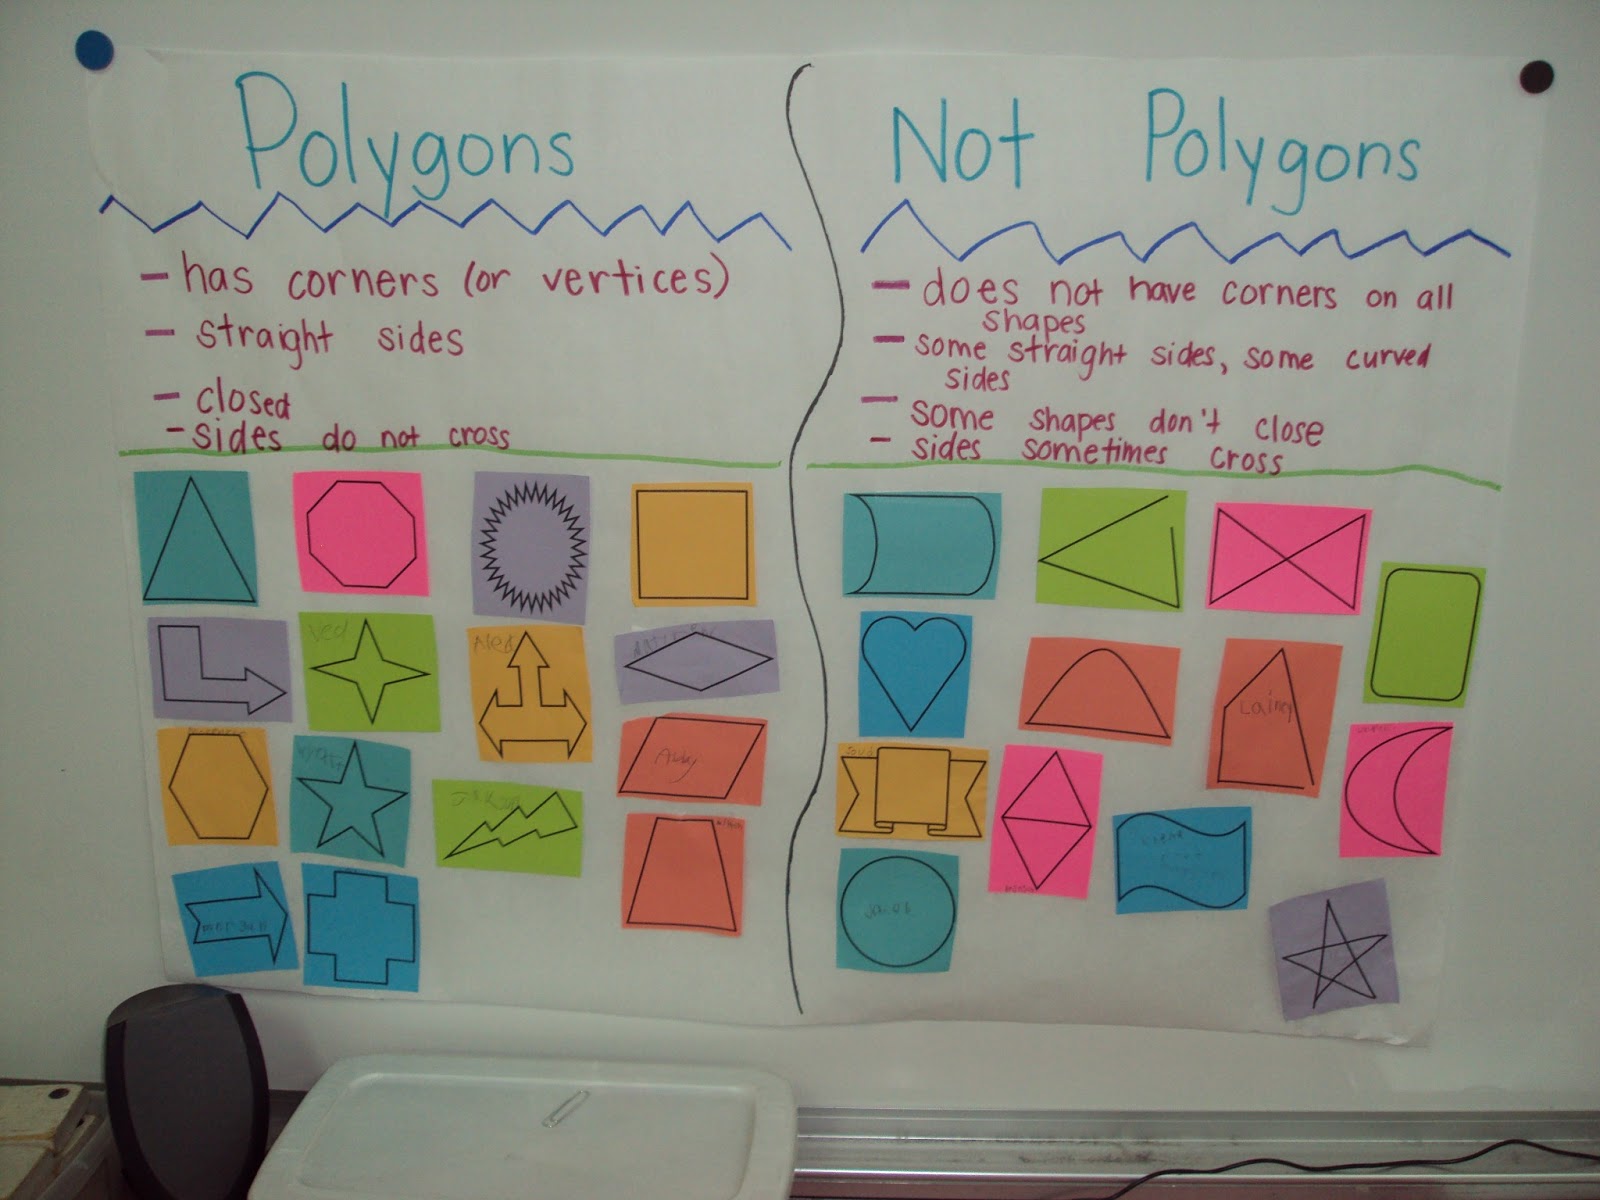 Polygons
- has corners (or vertices)
- straight sides
- closed
- sides do not cross
Ved
Alex
Audy
morgan
Not Polygons
- does not have corners on all
shapes
- some straight sides, some curved
sides
- some shapes don't close
- sides sometimes cross
Lainey
Jacob